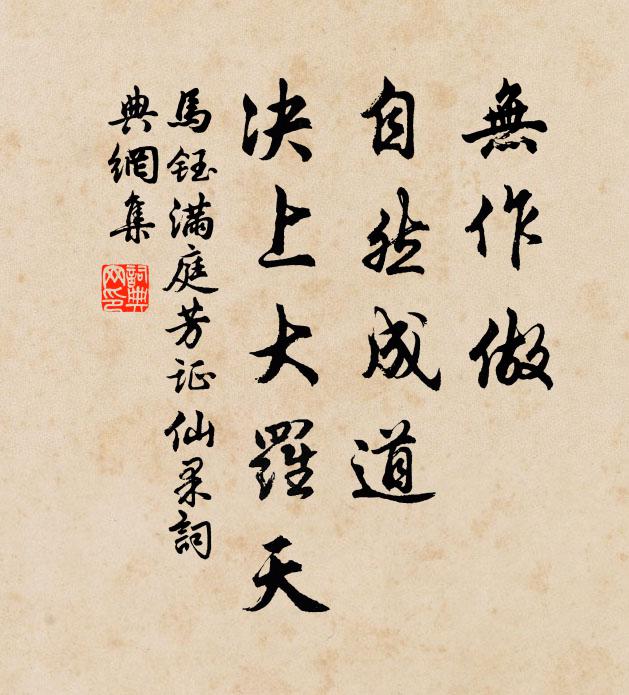 無作做
自然成道
决上大羅天
馬鈺滿庭芳証仙果詞
典網集
詞典
网印